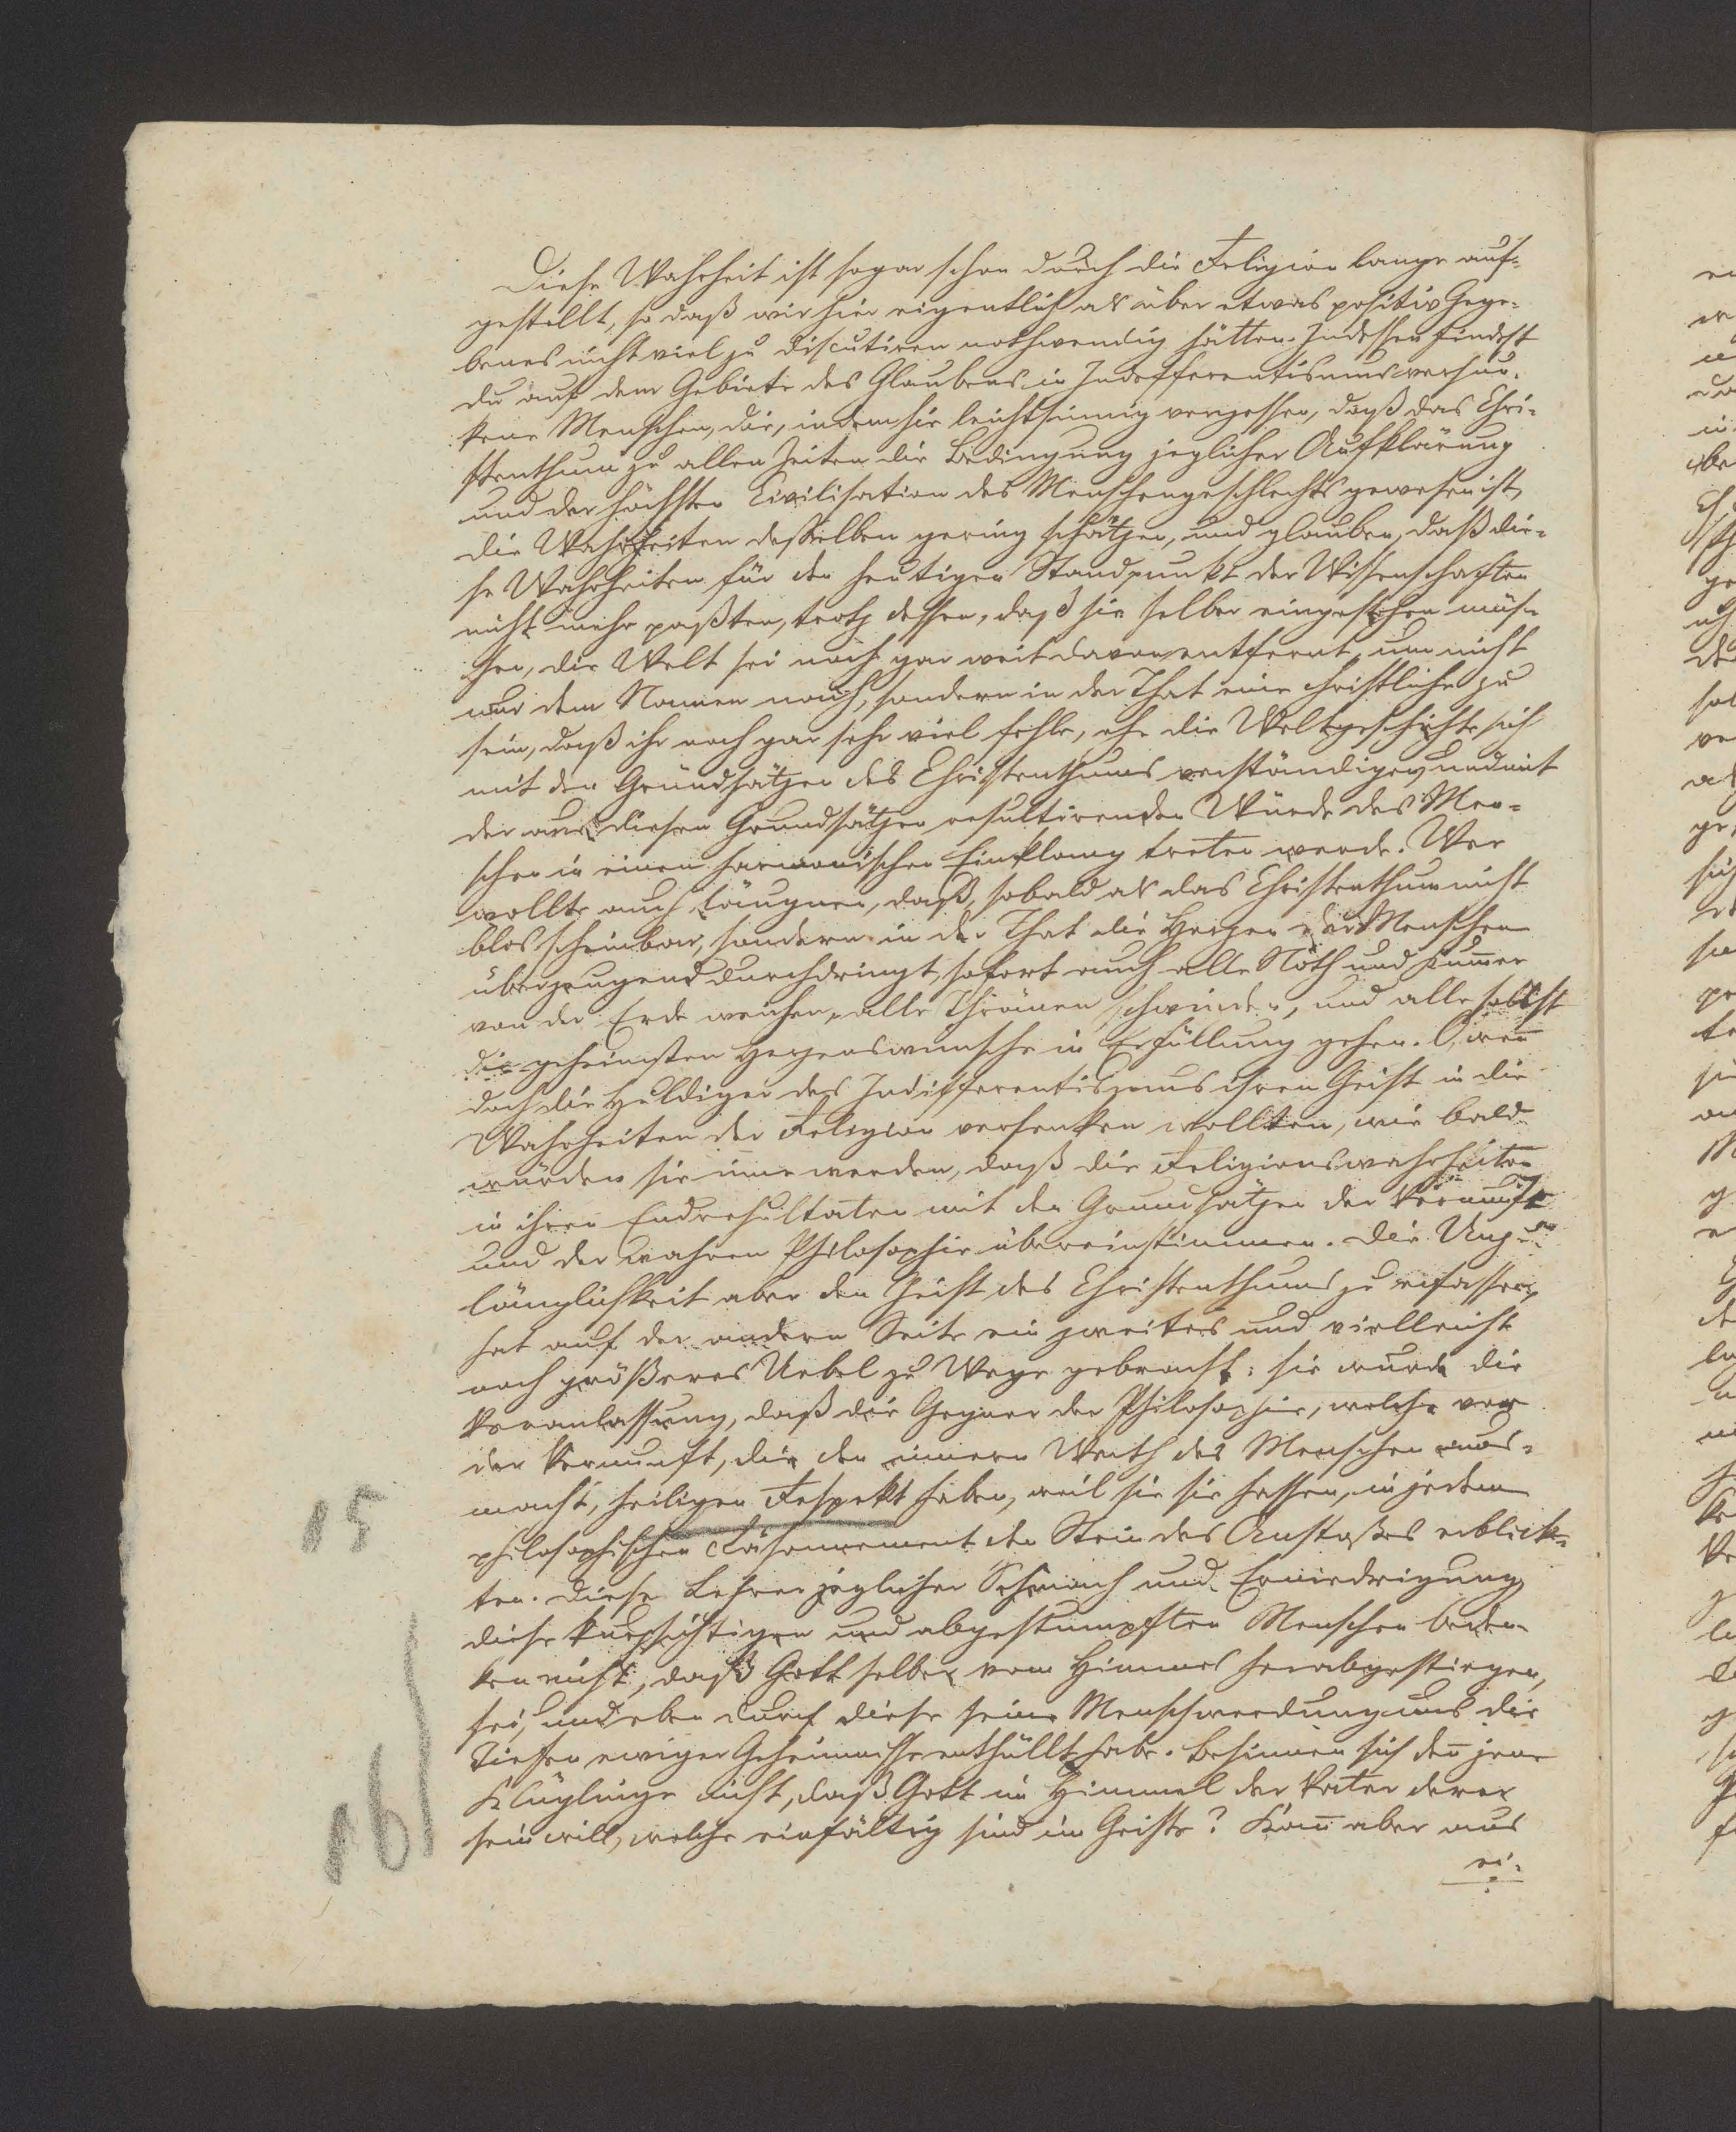 Diese Wahrheit ist sogar schon durch die Religion lange auf-
gestellt, so daß wir hier eigentlich als über etwas positiv Gege-
benes nicht viel zu discutiren nothwendig hätten. Indessen findest
du auf dem Gebiete des Glaubens in Indefferentismus versun-
kene Menschen, die, indem sie leichtsinnig vergessen, daß das Chri-
stenthum zu allen Zeiten die Bedingung jeglicher Aufklärung
und der höchsten Civilisation des Menschengeschlechts gewesen ist,
die Wahrheiten desselben gering schätzen, und glauben, daß die-
se Wahrheiten für den heutigen Standpunkt der Wissenschaften
nicht mehr paßten, trotz dessen, daß sie selber eingestehen müs-
sen, die Welt sei noch gar weit davon entfernt, um nicht
nur dem Namen nach, sondern in der That eine christliche zu
sein, daß ihr noch gar sehr viel fehle, ehe die Weltgeschichte sich
mit den Grundsätzen des Christenthums verständigen, und mit
der aus diesen Grundsätzen resultirenden Würde des Men-
schen in einen harmonischen Einklang treten werde. Wer
wollte auch läugnen, daß, sobald als das Christenthum nicht
blos scheinbar, sondern in der That die Herzen der Menschen
überzeugend durchdringt, sofort auch alle Noth und Kum̅er
von der Erde weichen, alle Thränen schwinden, und alle selbst
die geheimsten Herzenswünsche in Erfüllung gehen. O, wen̅
doch die Huldiger des Indifferentismus ihren Geist in die
Wahrheiten der Religion versenken wollten, wie bald
würden sie inne werden, daß die Religionswahrheiten
in ihren Endresultaten mit den Grundsätzen der Vernunft
und der wahren Philosophie übereinstimmen. Die Unzu-
länglichkeit aber den Geist des Christenthums zu erfassen,
hat auf der andern Seite ein zweites und vielleicht
noch größeres Uebel zu Wege gebracht: sie wurde die
Veranlassung, daß die Gegner der Philosophie, welche vor
der Vernunft, die den innern Werth des Menschen aus-
macht, heiligen Respekt haben, weil sie sie hassen, in jedem
philosophischen Räsonnement den Stein des Anstoßes erblick-
ten. Diese Lehrer jeglicher Schmach und Erniedrigung
diese kurzsichtigen und abgestumpften Menschen beden-
ken nicht, daß Gott selber vom Himmel herabgestiegen,
sei, und eben durch diese seine Menschwerdung uns die
Tiefen ewiger Geheimnisse enthüllt habe. Besinnen sich den̅ jene
Klüglinge nicht, daß Gott im Himmel der Vater derer
sein will, welche einfältig sind im Geiste? Kan̅ aber aus
ei-
15
16